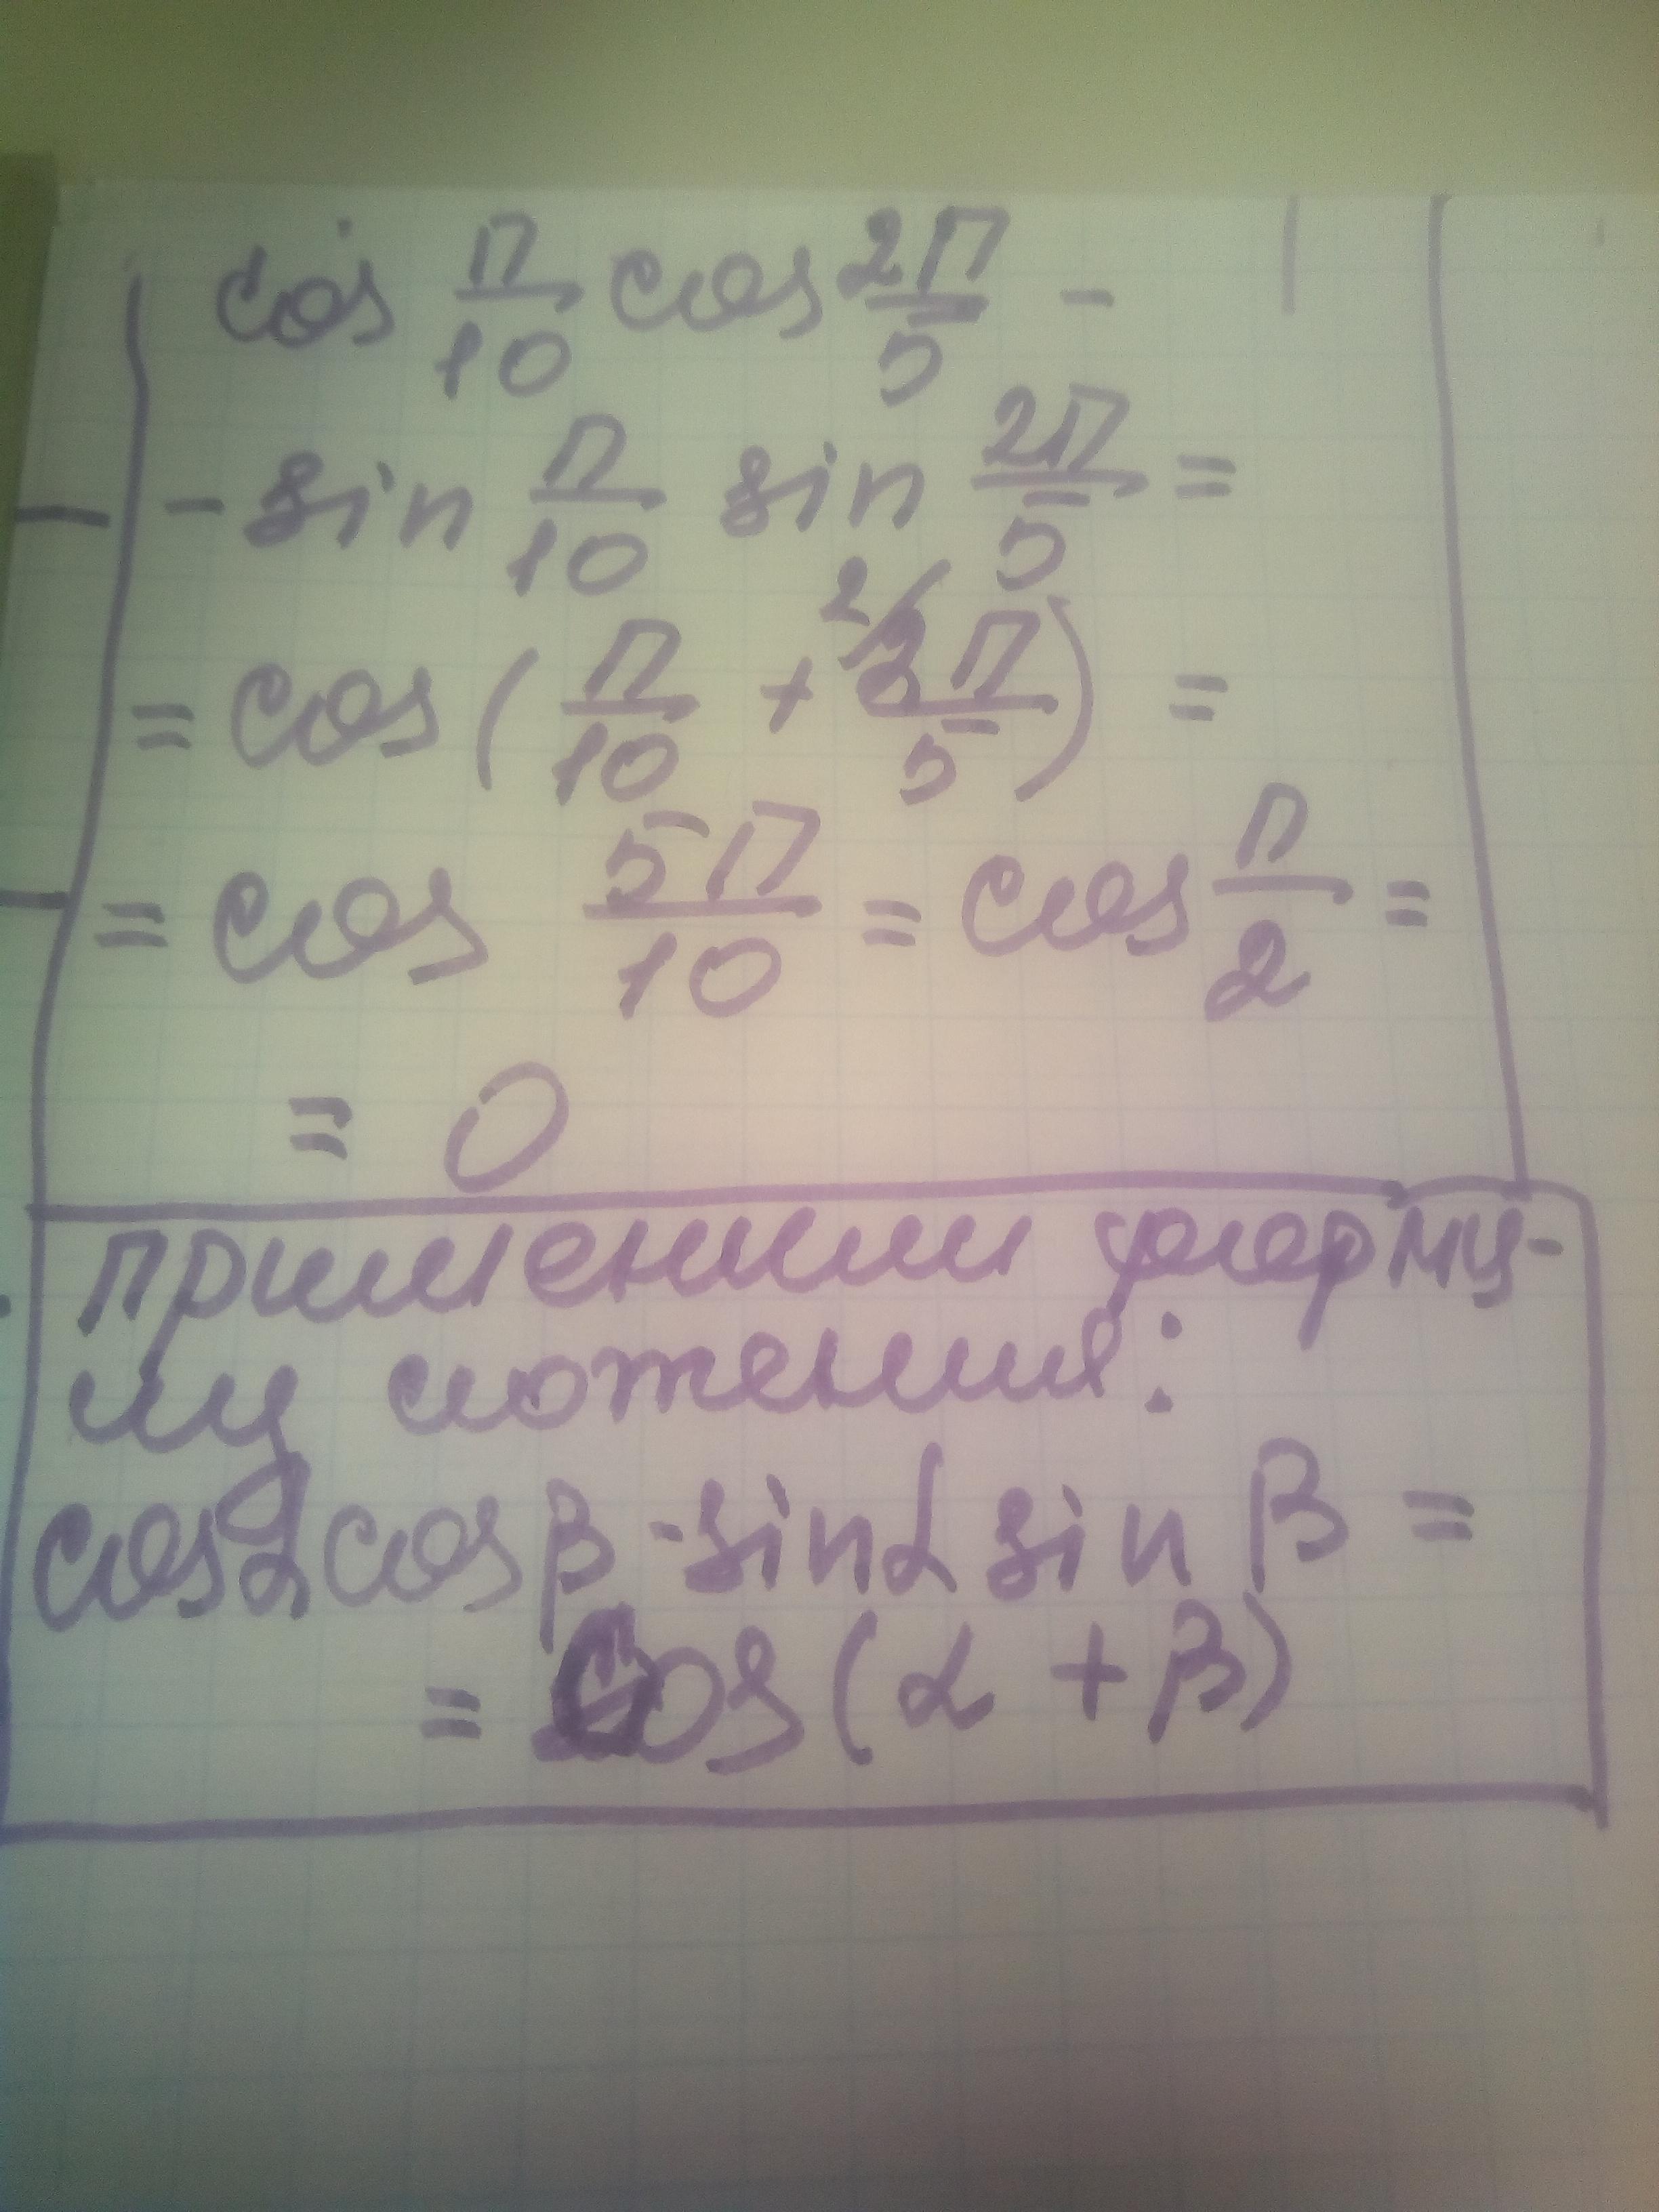 cos π/10 cos 2π/5 -
- sin π/10 sin 2π/5 =
= cos (π/10 + 2/ 2π/5) =
= cos 5π/10 = cos π/2 =
= 0
применили форму-
лу сложения:
cosα cosβ - sinα sin β =
= cos (α + β)